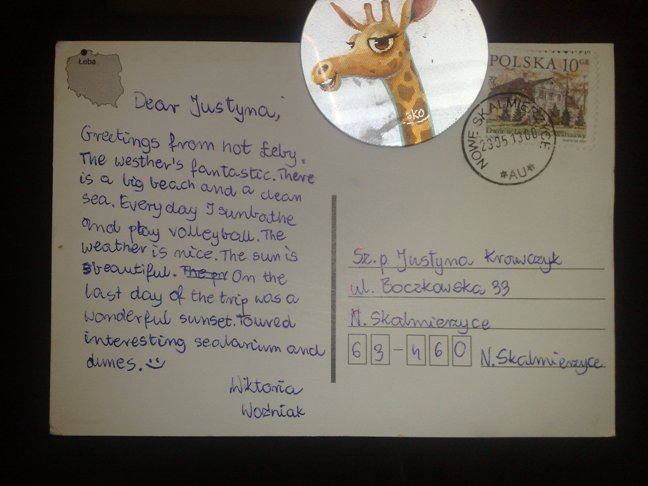 Łeba
Dear Justyna,
Greetings from hot Łeby.
The westher's fantastic. There
is a big beach and a clean
sea. Everyday I sunbathe
and play volleyball. The
weather is nice. The sun is
beautiful. The pr On the
last day of the trip was a
wonderful sunset. Toured
interesting sealarium and
dunes.
Wiktoria
Woźniak
SKO
POLSKA 10 GR
NOWE SKALMIERZYCE
*AU*
Sz. p. Justyna Krowczyk
ul. Boczkowska 33
N. Skalmierzyce
63-460 N. Skalmierzyce